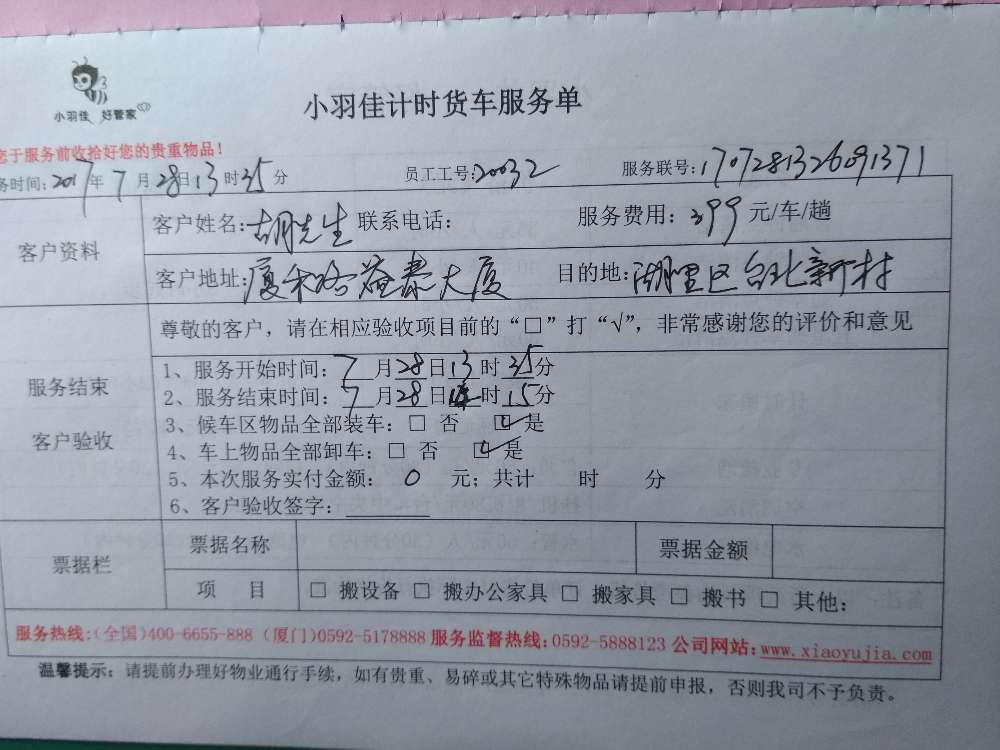 小羽佳 好管家
小羽佳计时货车服务单
您于服务前收拾好您的贵重物品！
务时间：2017年7月28日13时35分 员工工号：20032 服务联号：1707281326091371
客户资料
客户姓名：胡先生 联系电话： 服务费用：399元/车/趟
客户地址：厦禾路益泰大厦 目的地：湖里区台北新村
服务结束
客户验收
尊敬的客户，请在相应验收项目前的“□”打“√”，非常感谢您的评价和意见
1、服务开始时间：7月28日13时35分
2、服务结束时间：7月28日时15分
3、候车区物品全部装车：□ 否 ☑ 是
4、车上物品全部卸车：□ 否 ☑ 是
5、本次服务实付金额： 0 元；共计 时 分
6、客户验收签字：
票据栏
票据名称 票据金额
项 目 □ 搬设备 □ 搬办公家具 □ 搬家具 □ 搬书 □ 其他：
服务热线：(全国)400-6655-888 (厦门)0592-5178888 服务监督热线：0592-5888123 公司网站：www.xiaoyujia.com
温馨提示：请提前办理好物业通行手续，如有贵重、易碎或其它特殊物品请提前申报，否则我司不予负责。